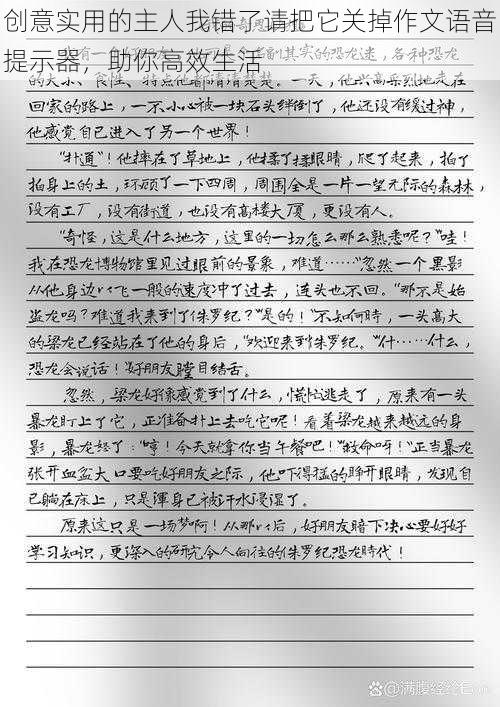 创意实用的主人我错了请把它关掉作文语音
提示器，助你高效生活
的大小、食性、特点他都清清楚楚。一天，他兴高采烈地走在
回家的路上，一不小心被一块石头绊倒了，他还没有缓过神，
他感觉自己进入了另一个世界！
“扑通”！他摔在了草地上，他揉了揉眼睛，爬了起来，拍了
拍身上的土，环顾了一下四周，周围全是一片一望无际的森林，
没有工厂，没有街道，也没有高楼大厦，更没有人。
“奇怪，这是什么地方，这里的一切怎么那么熟悉呢？”哇！
我在恐龙博物馆里见过眼前的景象，难道……”忽然一个黑影
从他身边以飞一般的速度冲了过去，连头也不回。“那不是始
盗龙吗？难道我来到了侏罗纪？”是的！”不知何時，一头高大
的梁龙已经站在了他的身后，“欢迎来到侏罗纪。”什……什么，
恐龙会说话！”好朋友瞠目结舌。
忽然，梁龙好像感觉到了什么，慌忙逃走了，原来有一头
暴龙盯上了它，正准备扑上去吃它呢！看着梁龙越来越远的身
影，暴龙怒了：“哼！今天就拿你当午餐吧！”“救命呀！”正当暴龙
张开血盆大口要吃好朋友之际，他吓得猛的睁开眼睛，发现自
己躺在床上，只是渾身已被汗水浸湿了。
原来这只是一场梦啊！从那以后，好朋友暗下决心要好好
学习知识，更深入的研究令人向往的侏罗纪恐龙時代！